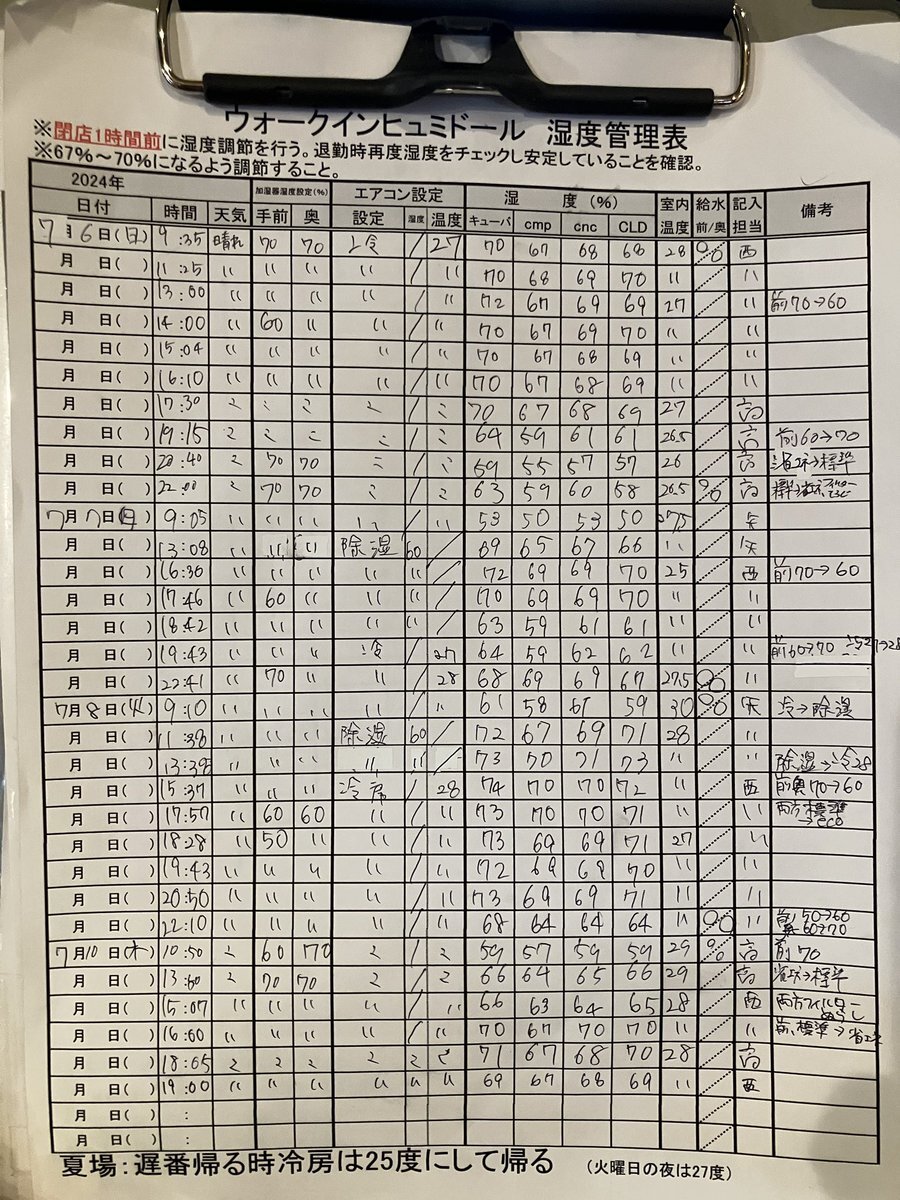 ウォークインヒュミドール 湿度管理表
※閉店1時間前に湿度調節を行う。退勤時再度湿度をチェックし安定していることを確認。
※67%～70%になるよう調節すること。
2024年 加湿器湿度設定(%) エアコン設定 湿 度 (%) 室内 給水 記入 備考
日付 時間 天気 手前 奥 設定 湿度 温度 キューバ cmp cnc CLD 温度 前/奥 担当
7月6日(日) 9:35 晴れ 70 70 冷 / 27 70 67 68 68 28 西
月 日( ) 11:25 〃 〃 〃 〃 / 〃 70 68 69 70 〃 〃
月 日( ) 13:00 〃 〃 〃 〃 / 〃 72 67 69 69 27 〃 前70→60
月 日( ) 14:00 〃 60 〃 〃 / 〃 70 67 69 70 〃 〃
月 日( ) 15:04 〃 〃 〃 〃 / 〃 70 67 68 69 〃 〃
月 日( ) 16:10 〃 〃 〃 〃 / 〃 70 67 68 69 〃 〃
月 日( ) 17:30 〃 〃 〃 〃 / 〃 70 67 68 69 27 高
月 日( ) 19:15 〃 〃 〃 〃 / 〃 64 59 61 61 26.5 高 前60→70
月 日( ) 20:40 〃 70 70 〃 / 〃 59 55 57 57 26 高 省エネ→標準
月 日( ) 22:00 〃 70 70 〃 / 〃 63 59 60 58 26.5 高 標準→省エネ
7月7日(月) 9:05 〃 〃 〃 〃 / 〃 53 50 53 50 27.5 矢
月 日( ) 13:08 〃 〃 〃 除湿 60 / 69 65 67 66 〃 矢
月 日( ) 16:30 〃 〃 〃 〃 〃 / 72 69 69 70 25 西 前70→60
月 日( ) 17:46 〃 60 〃 〃 〃 / 70 69 69 70 〃 〃
月 日( ) 18:42 〃 〃 〃 〃 〃 / 63 59 61 61 〃 〃
月 日( ) 19:43 〃 〃 〃 冷 / 27 64 59 62 62 〃 〃 前60→70 27→28
月 日( ) 22:41 〃 70 〃 〃 / 28 68 69 69 67 27.5 〃
7月8日(火) 9:10 〃 〃 〃 〃 / 〃 61 58 61 59 30 矢 冷→除湿
月 日( ) 11:38 〃 〃 〃 除湿 60 / 72 67 69 71 28 〃
月 日( ) 13:38 〃 〃 〃 〃 〃 / 73 70 71 73 〃 〃 除湿→冷28
月 日( ) 15:37 〃 〃 〃 冷房 / 28 74 70 70 72 〃 西 前奥70→60
月 日( ) 17:50 〃 60 60 〃 / 〃 73 70 70 71 〃 〃 両方標準→eco
月 日( ) 18:28 〃 50 〃 〃 / 〃 73 69 69 71 27 〃
月 日( ) 19:43 〃 〃 〃 〃 / 〃 72 69 69 70 〃 〃
月 日( ) 20:50 〃 〃 〃 〃 / 〃 73 69 69 71 〃 〃
月 日( ) 22:10 〃 〃 〃 〃 / 〃 68 64 64 64 〃 〃 前50→60 奥60→70
7月10日(木) 10:50 〃 60 70 〃 / 〃 59 57 59 59 29 高 前70
月 日( ) 13:00 〃 70 70 〃 / 〃 66 64 65 66 29 高 省エネ→標準
月 日( ) 15:07 〃 〃 〃 〃 / 〃 66 63 64 65 28 西 両方フィルター
月 日( ) 16:00 〃 〃 〃 〃 / 〃 70 67 70 70 〃 〃 前、標準→省エネ
月 日( ) 18:05 〃 〃 〃 〃 〃 〃 71 67 68 70 28 高
月 日( ) 19:00 〃 〃 〃 〃 〃 〃 69 67 68 69 〃 西
月 日( ) :
月 日( ) :
夏場：遅番帰る時冷房は25度にして帰る (火曜日の夜は27度)